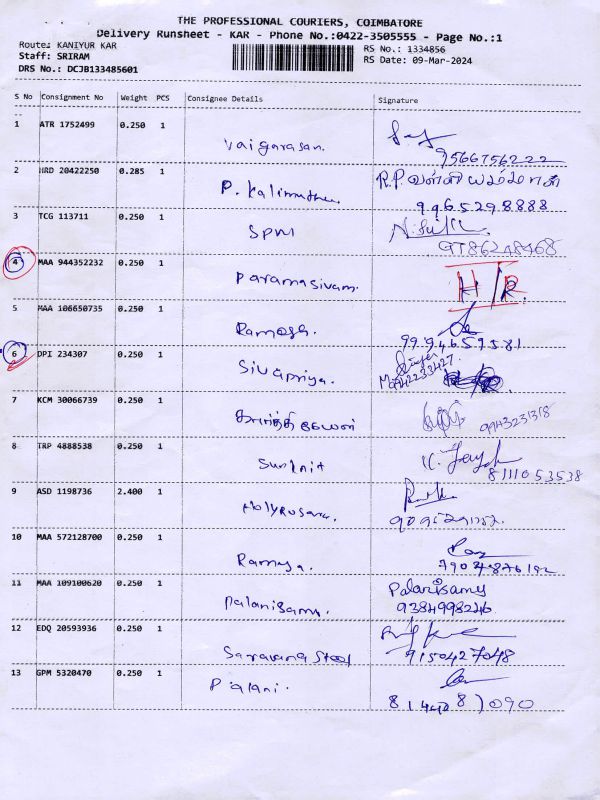 THE PROFESSIONAL COURIERS, COIMBATORE
Delivery Runsheet - KAR - Phone No.:0422-3505555 - Page No.:1
Route: KANIYUR KAR
RS No.: 1334856
Staff: SRIRAM
RS Date: 09-Mar-2024
DRS No.: DCJB133485601
S No Consignment No Weight PCS Consignee Details Signature
1 ATR 1752499 0.250 1
Vaigarasan.
9566756222
2 HRD 20422250 0.285 1
P. Kalimuthu
R.P. வள்ளியம்மாள்
9965298888
3 TCG 113711 0.250 1
SPM
4 MAA 944352232 0.250 1
Paramasivam.
H/R
5 MAA 106650735 0.250 1
Ramesh.
9994659581
6 DPI 234307 0.250 1
Sivapriya.
7 KCM 30066739 0.250 1
கார்த்திகேயன்
9943231318
8 TRP 4888538 0.250 1
8111053538
9 ASD 1198736 2.400 1
10 MAA 572128700 0.250 1
Ramya.
11 MAA 109100620 0.250 1
Palanisamy.
Palanisamy
9384998246
12 EDQ 20593936 0.250 1
Saravana Steel
9150427048
13 GPM 5320470 0.250 1
Palani.